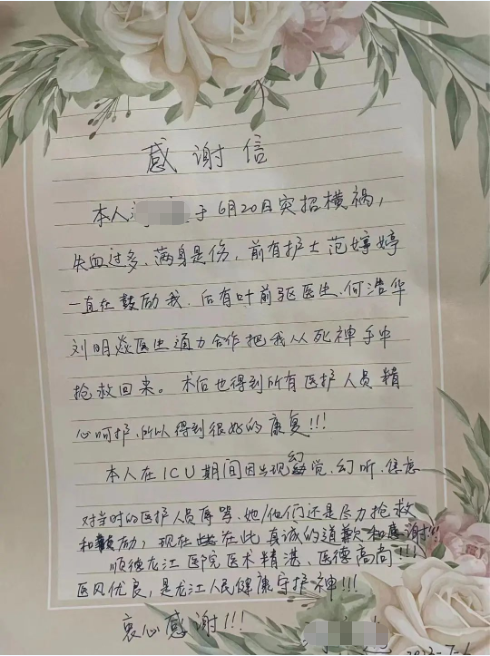 感谢信
本人 于6月20日突招横祸，
失血过多、满身是伤，前有护士范婷婷
一直在鼓励我，后有叶前驱医生、何浩华
刘明焱医生通力合作把我从死神手中
抢救回来。术后也得到所有医护人员精
心呵护，所以得到很好的康复!!!
本人在ICU期间因出现幻觉、幻听、焦虑
对当时的医护人员辱骂，她/他们还是尽力抢救
和鼓励，现在在此真诚的道歉和感谢!!!
顺德龙江医院医术精湛、医德高尚!!!
医风优良，是龙江人民健康守护神!!!
衷心感谢!!!